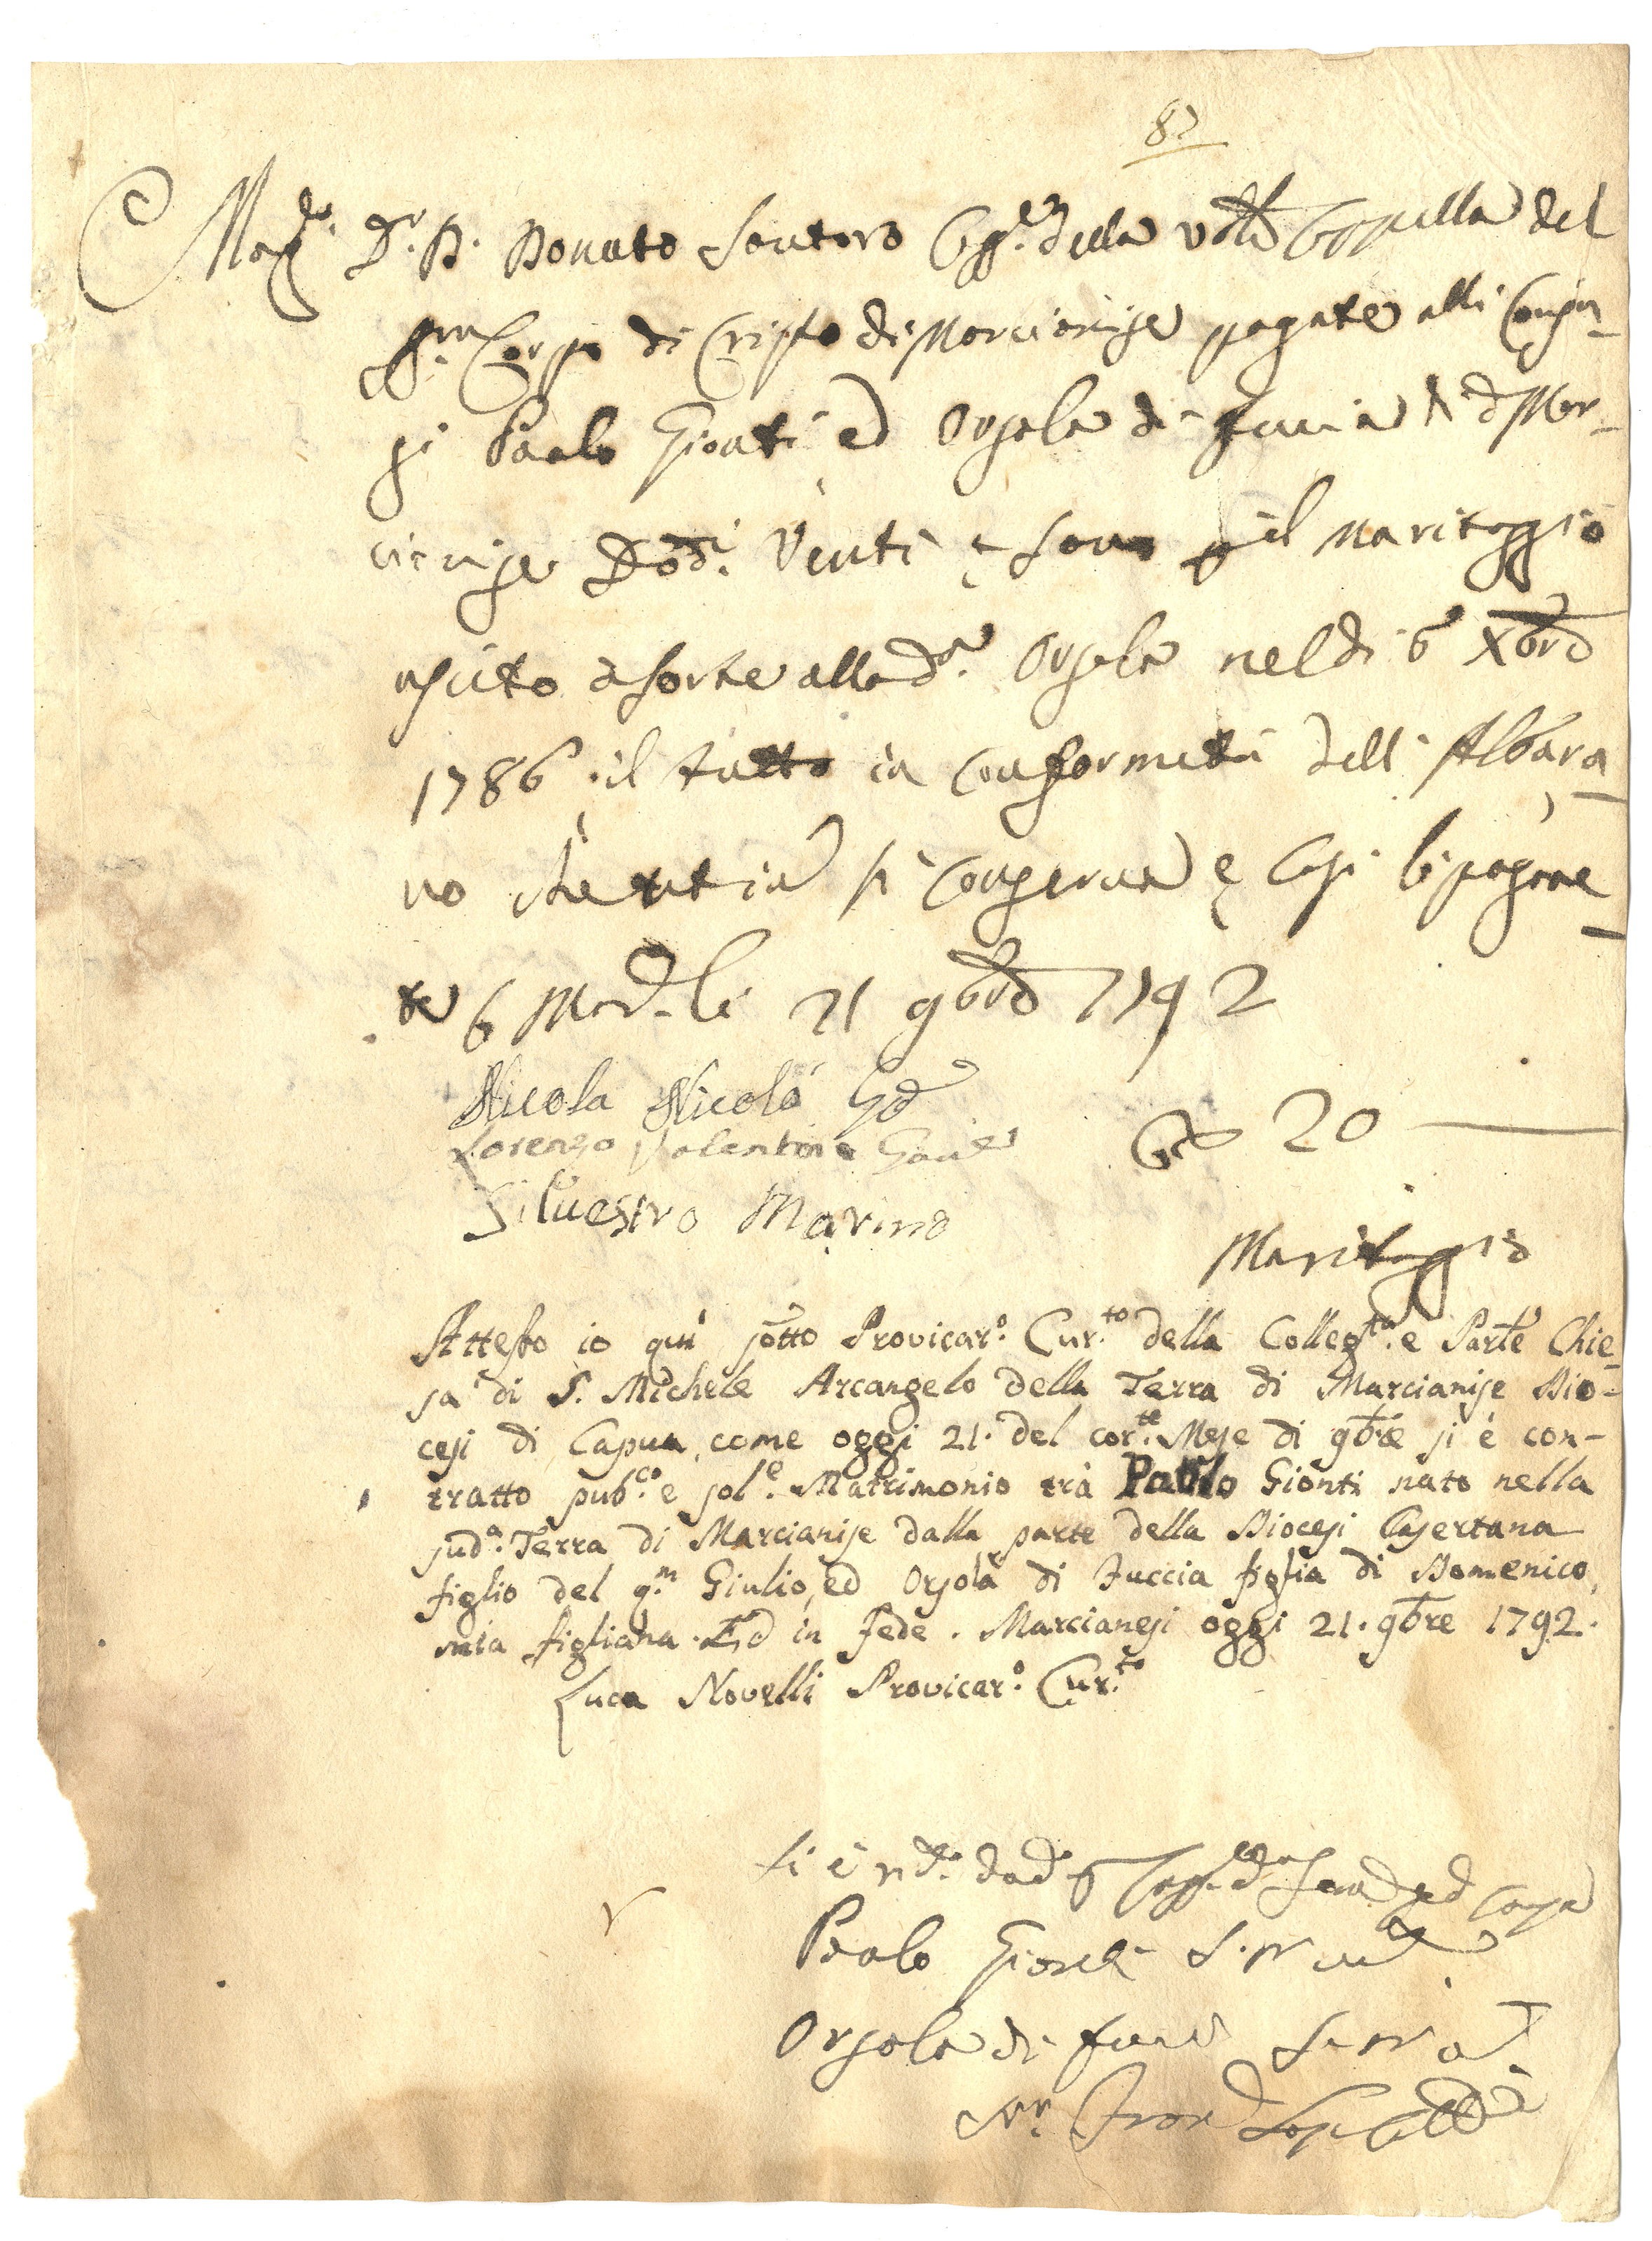 82
Mag.co D.r D. Donato Santoro Cass.re della v̄ra Cappella del
SS.mo Corpo di Cristo di Marcianise pagate alli Conju-
gi Paolo Gionti ed Orsola di Fuccia di d.a Mar-
cianise Doc.ti Venti e sono p il maritaggio
uscito a sorte alla d.a Orsola nel dì 6 Xbre
1786. il tutto in conformità dell' Albara
no che si conserva e così le pagare-
te 6 Mar.se li 21 9bre 1792
Nicola Nicolò
Lorenzo Valentino
Silvestro Marino
20
Maritaggio
Attesto io quì sotto Provicar.o Cur.to della Colleg.ta e Parle Chie-
sa di S. Michele Arcangelo della Terra di Marcianise Dio-
cesi di Capua, come oggi 21. del cor.te Mese di 9bre si è con-
tratto pub.co e sol.e Matrimonio trà Paolo Gionti nato nella
sud.a Terra di Marcianise dalla parte della Diocesi Casertana
figlio del q.m Giulio, ed Orsola di Fuccia figlia di Domenico,
mia figliana. Ed in fede. Marcianesi oggi 21. 9bre 1792.
Luca Novelli Provicar.o Cur.to
Si è
Paolo Gionti
Orsola di Fuccia